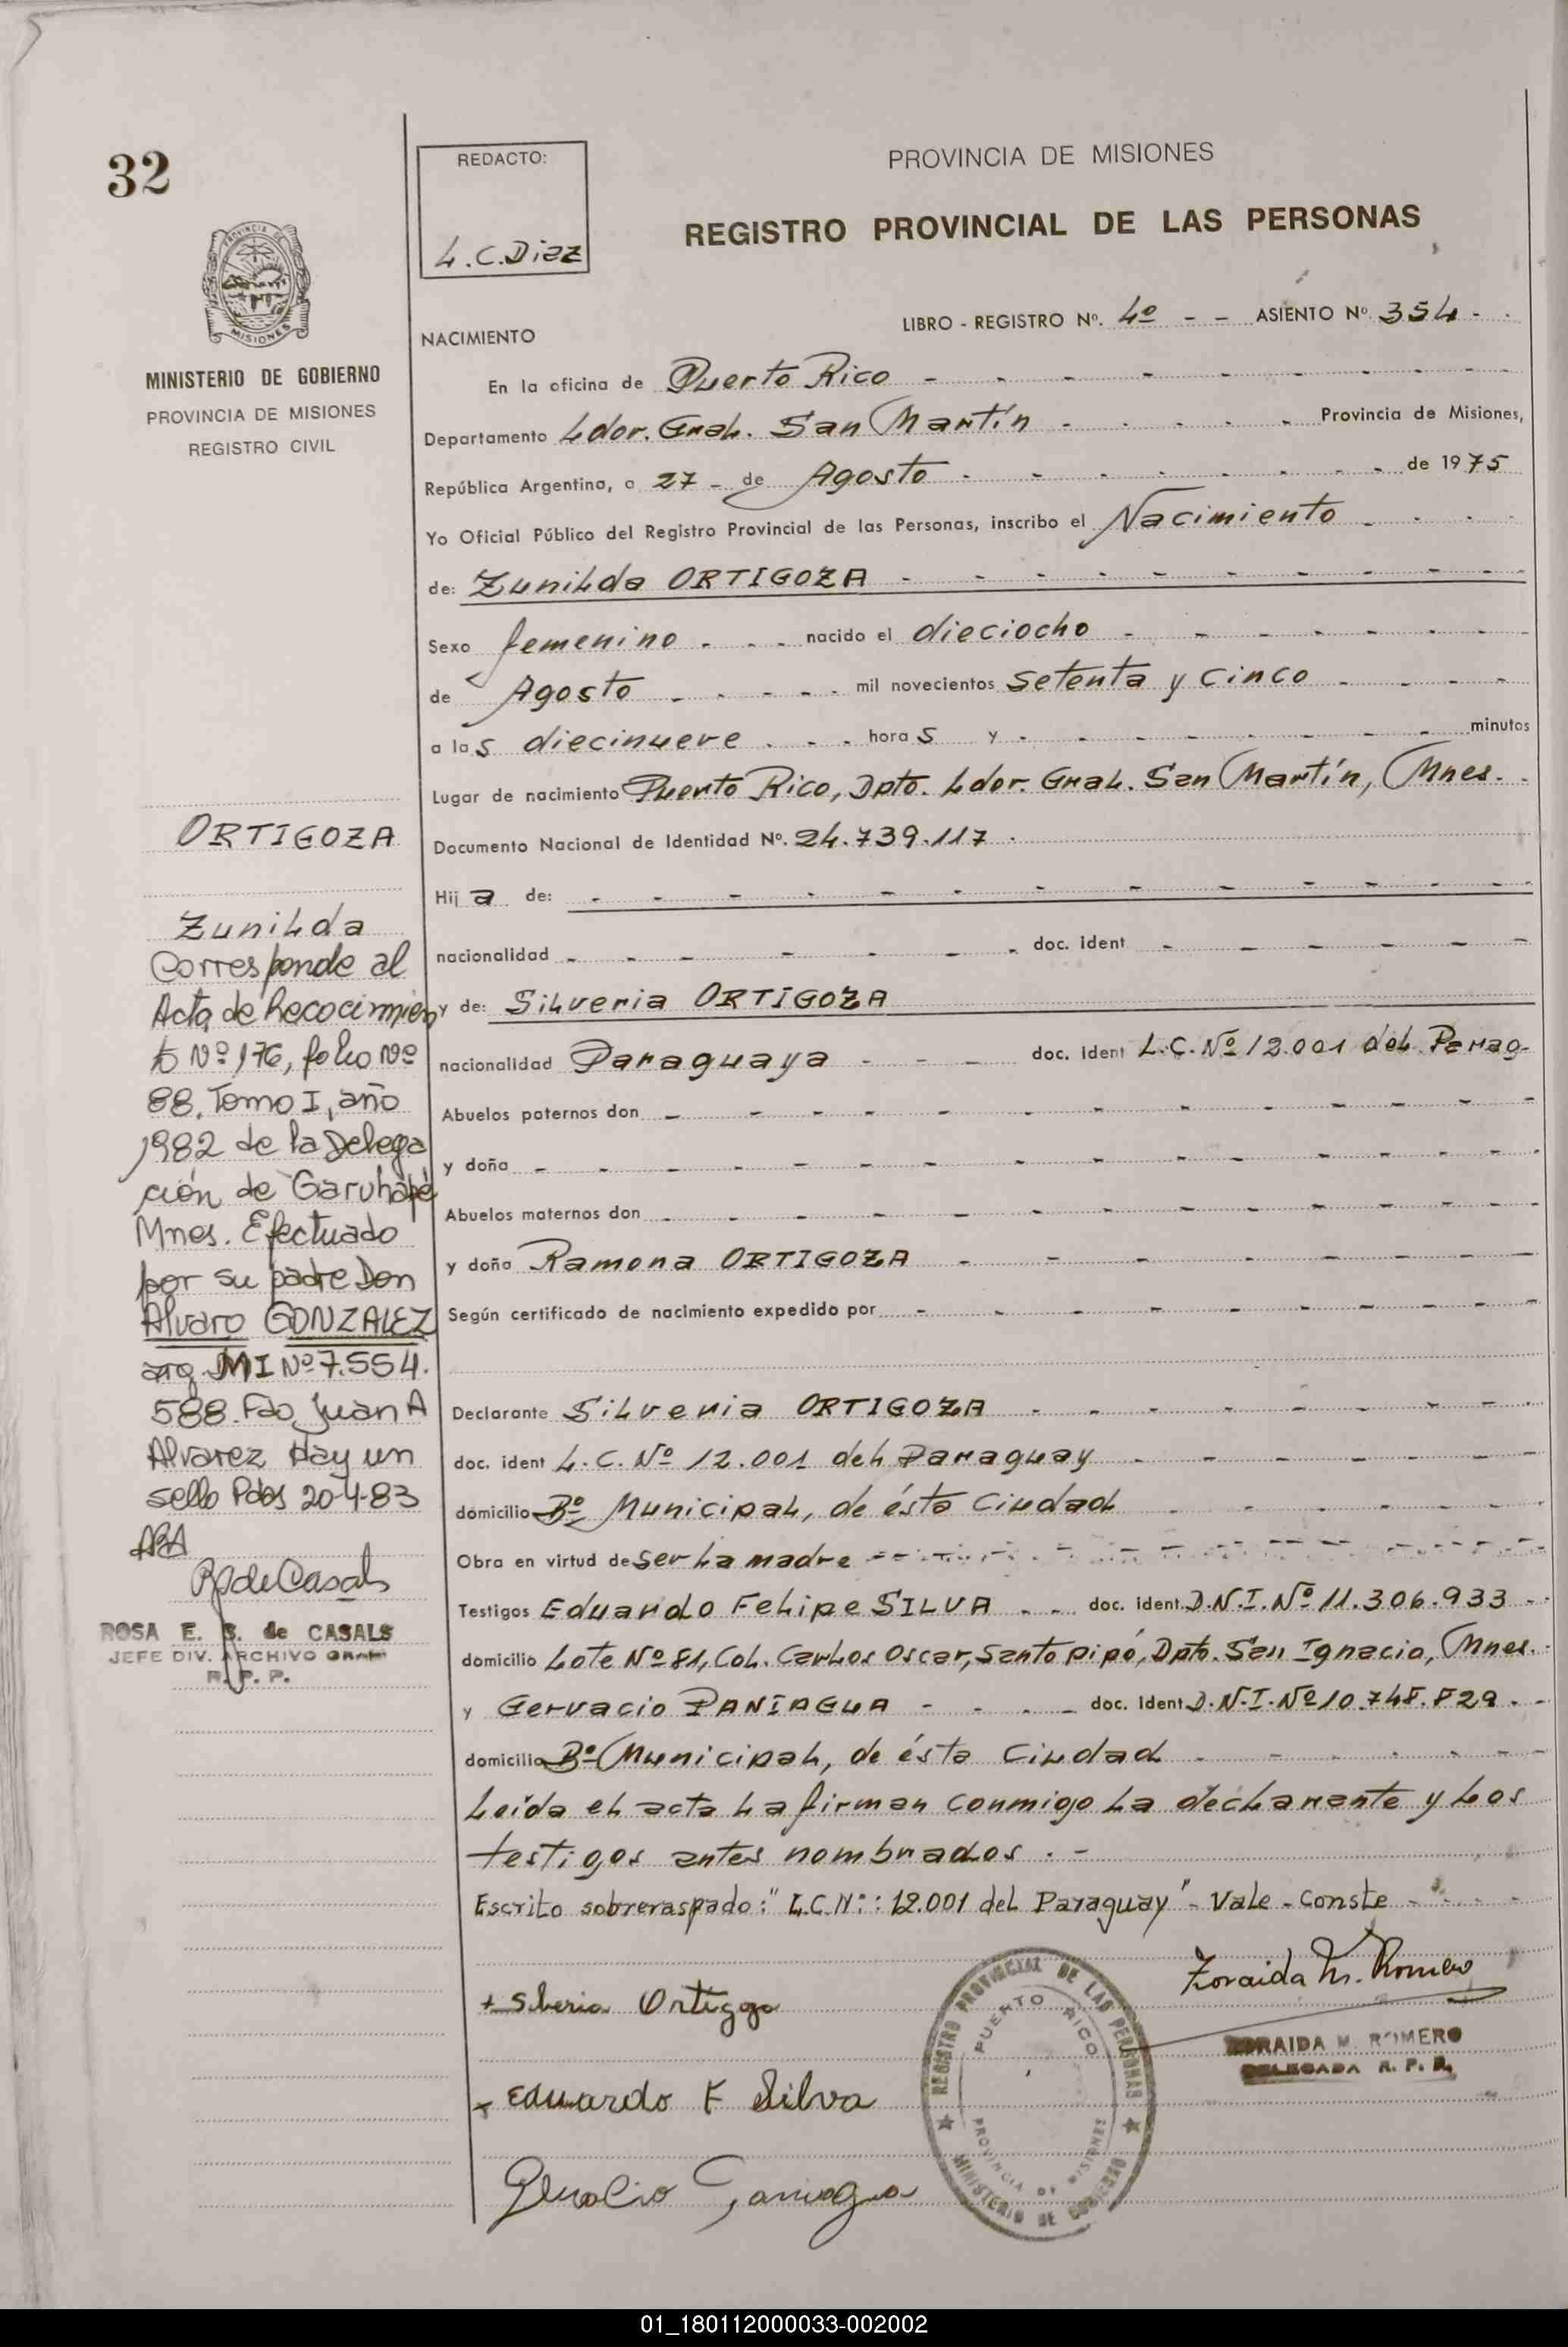 32
REDACTO:
L.C.Diaz
PROVINCIA DE MISIONES
REGISTRO PROVINCIAL DE LAS PERSONAS
PROVINCIA DE
MISIONES
MINISTERIO DE GOBIERNO
PROVINCIA DE MISIONES
REGISTRO CIVIL
LIBRO - REGISTRO Nº. 4º - - ASIENTO Nº 354 -
NACIMIENTO
En la oficina de Puerto Rico -
Departamento Ldor. Gral. San Martín - Provincia de Misiones,
República Argentina, a 27 - de Agosto - de 1975
Yo Oficial Público del Registro Provincial de las Personas, inscribo el Nacimiento -
de: Zunilda ORTIGOZA -
Sexo femenino - nacido el dieciocho -
de Agosto - mil novecientos setenta y cinco -
a las diecinueve - horas y - minutos
Lugar de nacimiento Puerto Rico, Dpto. Ldor. Gral. San Martín, Mnes. -
Documento Nacional de Identidad Nº. 24.739.117 -
Hija de: -
nacionalidad - doc. ident -
y de: Silveria ORTIGOZA
nacionalidad Paraguaya - doc. ident L.C. Nº 12.001 del Parag-
Abuelos paternos don -
y doña -
Abuelos maternos don -
y doña Ramona ORTIGOZA -
Según certificado de nacimiento expedido por -
Declarante Silveria ORTIGOZA -
doc. ident L.C. Nº 12.001 del Paraguay -
domicilio Bº Municipal, de ésta Ciudad -
Obra en virtud de ser la madre -
Testigos Eduardo Felipe SILVA - doc. ident. D.N.I. Nº 11.306.933 -
domicilio Lote Nº 81, Col. Carlos Oscar, Santo pipó, Dpto. San Ignacio, Mnes. -
y Gervacio PANIAGUA - doc. ident D.N.I. Nº 10.748.829 -
domicilio Bº Municipal, de ésta Ciudad -
Leida el acta la firman conmigo la declarante y los
testigos antes nombrados. -
Escrito sobreraspado: "L.C.Nº: 12.001 del Paraguay" - Vale - Conste -
ORTIGOZA
Zunilda
Corresponde al
Acta de Recocimien
to Nº 176, folio Nº
88. Tomo I, año
1982 de la Delega
ción de Garuhapé
Mnes. Efectuado
por su padre Don
Alvaro GONZALEZ
arg. MI Nº 7.554.
588. Fdo Juan A
Alvarez Hay un
sello Pdas 20-4-83
RdeCasals
ROSA E. S. de CASALS
JEFE DIV. ARCHIVO GRAL
R. P. P.
+ Silberia Ortigoza
Zoraida M. Romero
ZORAIDA M. ROMERO
DELEGADA R. P. P.
REGISTRO PROVINCIAL DE LAS PERSONAS
PUERTO RICO
PROVINCIA DE MISIONES
MINISTERIO DE GOBIERNO
x Eduardo F Silva
Gervacio Paniagua
01_180112000033-002002